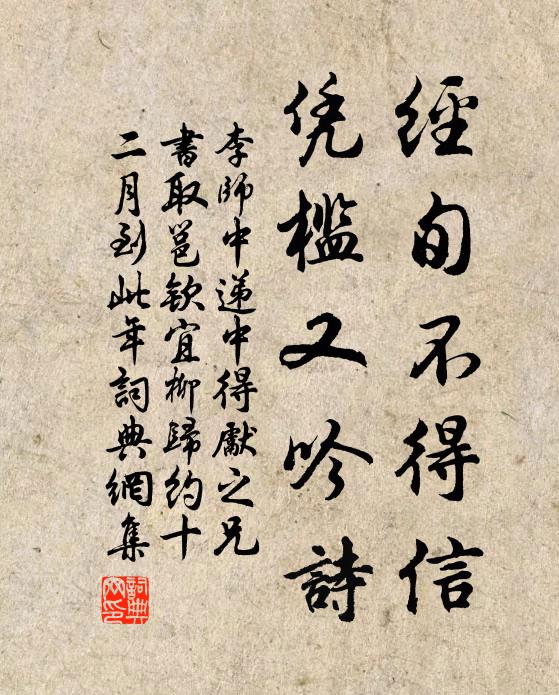 經旬不得信
凭檻又吟詩
李師中遞中得獻之兄
書取邕欽宜柳歸約十
二月到此年詞典網集
詞典
网印